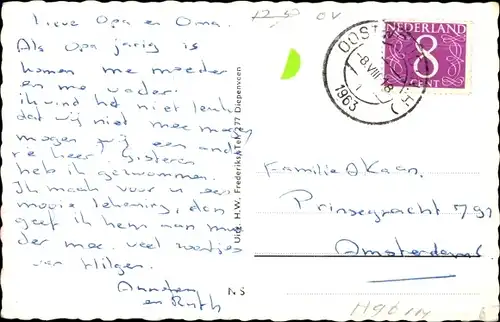 Lieve Opa en Oma.
Als Opa jarig is
komen me moeder
en me vader.
ik vind het niet leuk
dat wij niet mee
mogen wij een and
re keer. Gisteren
heb ik gewonnen.
Ik maak voor u een
mooie tekening, dan
geef ik hem aan
der mee. veel
van Hilgen.
en Ruth
12.50 OV
OOST
8 VIII 18
1963
NEDERLAND
8
CENT
Uitg. H.W. Frederiks, Tel. 277 Diepenveen
N S
Familie A Kaan.
Prinsegracht 791
Amsterdam.